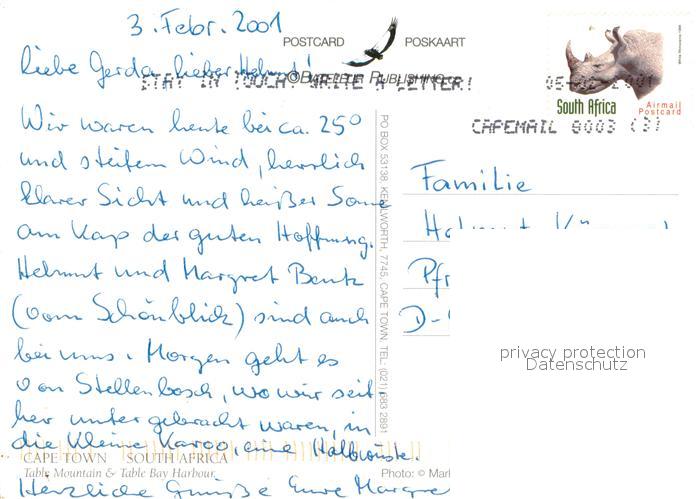 3. Febr. 2001
POSTCARD POSKAART
Liebe Gerda, lieber Helmut!
© BATELEUR PUBLISHING
STAY IN TOUCH, WRITE A LETTER!
South Africa
Airmail
Postcard
CAPEMAIL 0003 (3)
Wir waren heute bei ca. 25°
und steifem Wind, herrlich
klarer Sicht und heißer Sonne
am Kap der guten Hoffnung.
Helmut und Margret Bentz
(vom Schönblick) sind auch
bei uns. Morgen geht es
von Stellenbosch, wo wir seit
her untergebracht waren, in
die Kleine Karoo, eine Halbwüste.
Herzliche Grüße Eure Margre
PO BOX 53138, KENILWORTH, 7745, CAPE TOWN, TEL: (021) 683 2891
Familie
Helmut
Pfr
D-
privacy protection
Datenschutz
CAPE TOWN SOUTH AFRICA
Table Mountain & Table Bay Harbour
Photo: © Mark